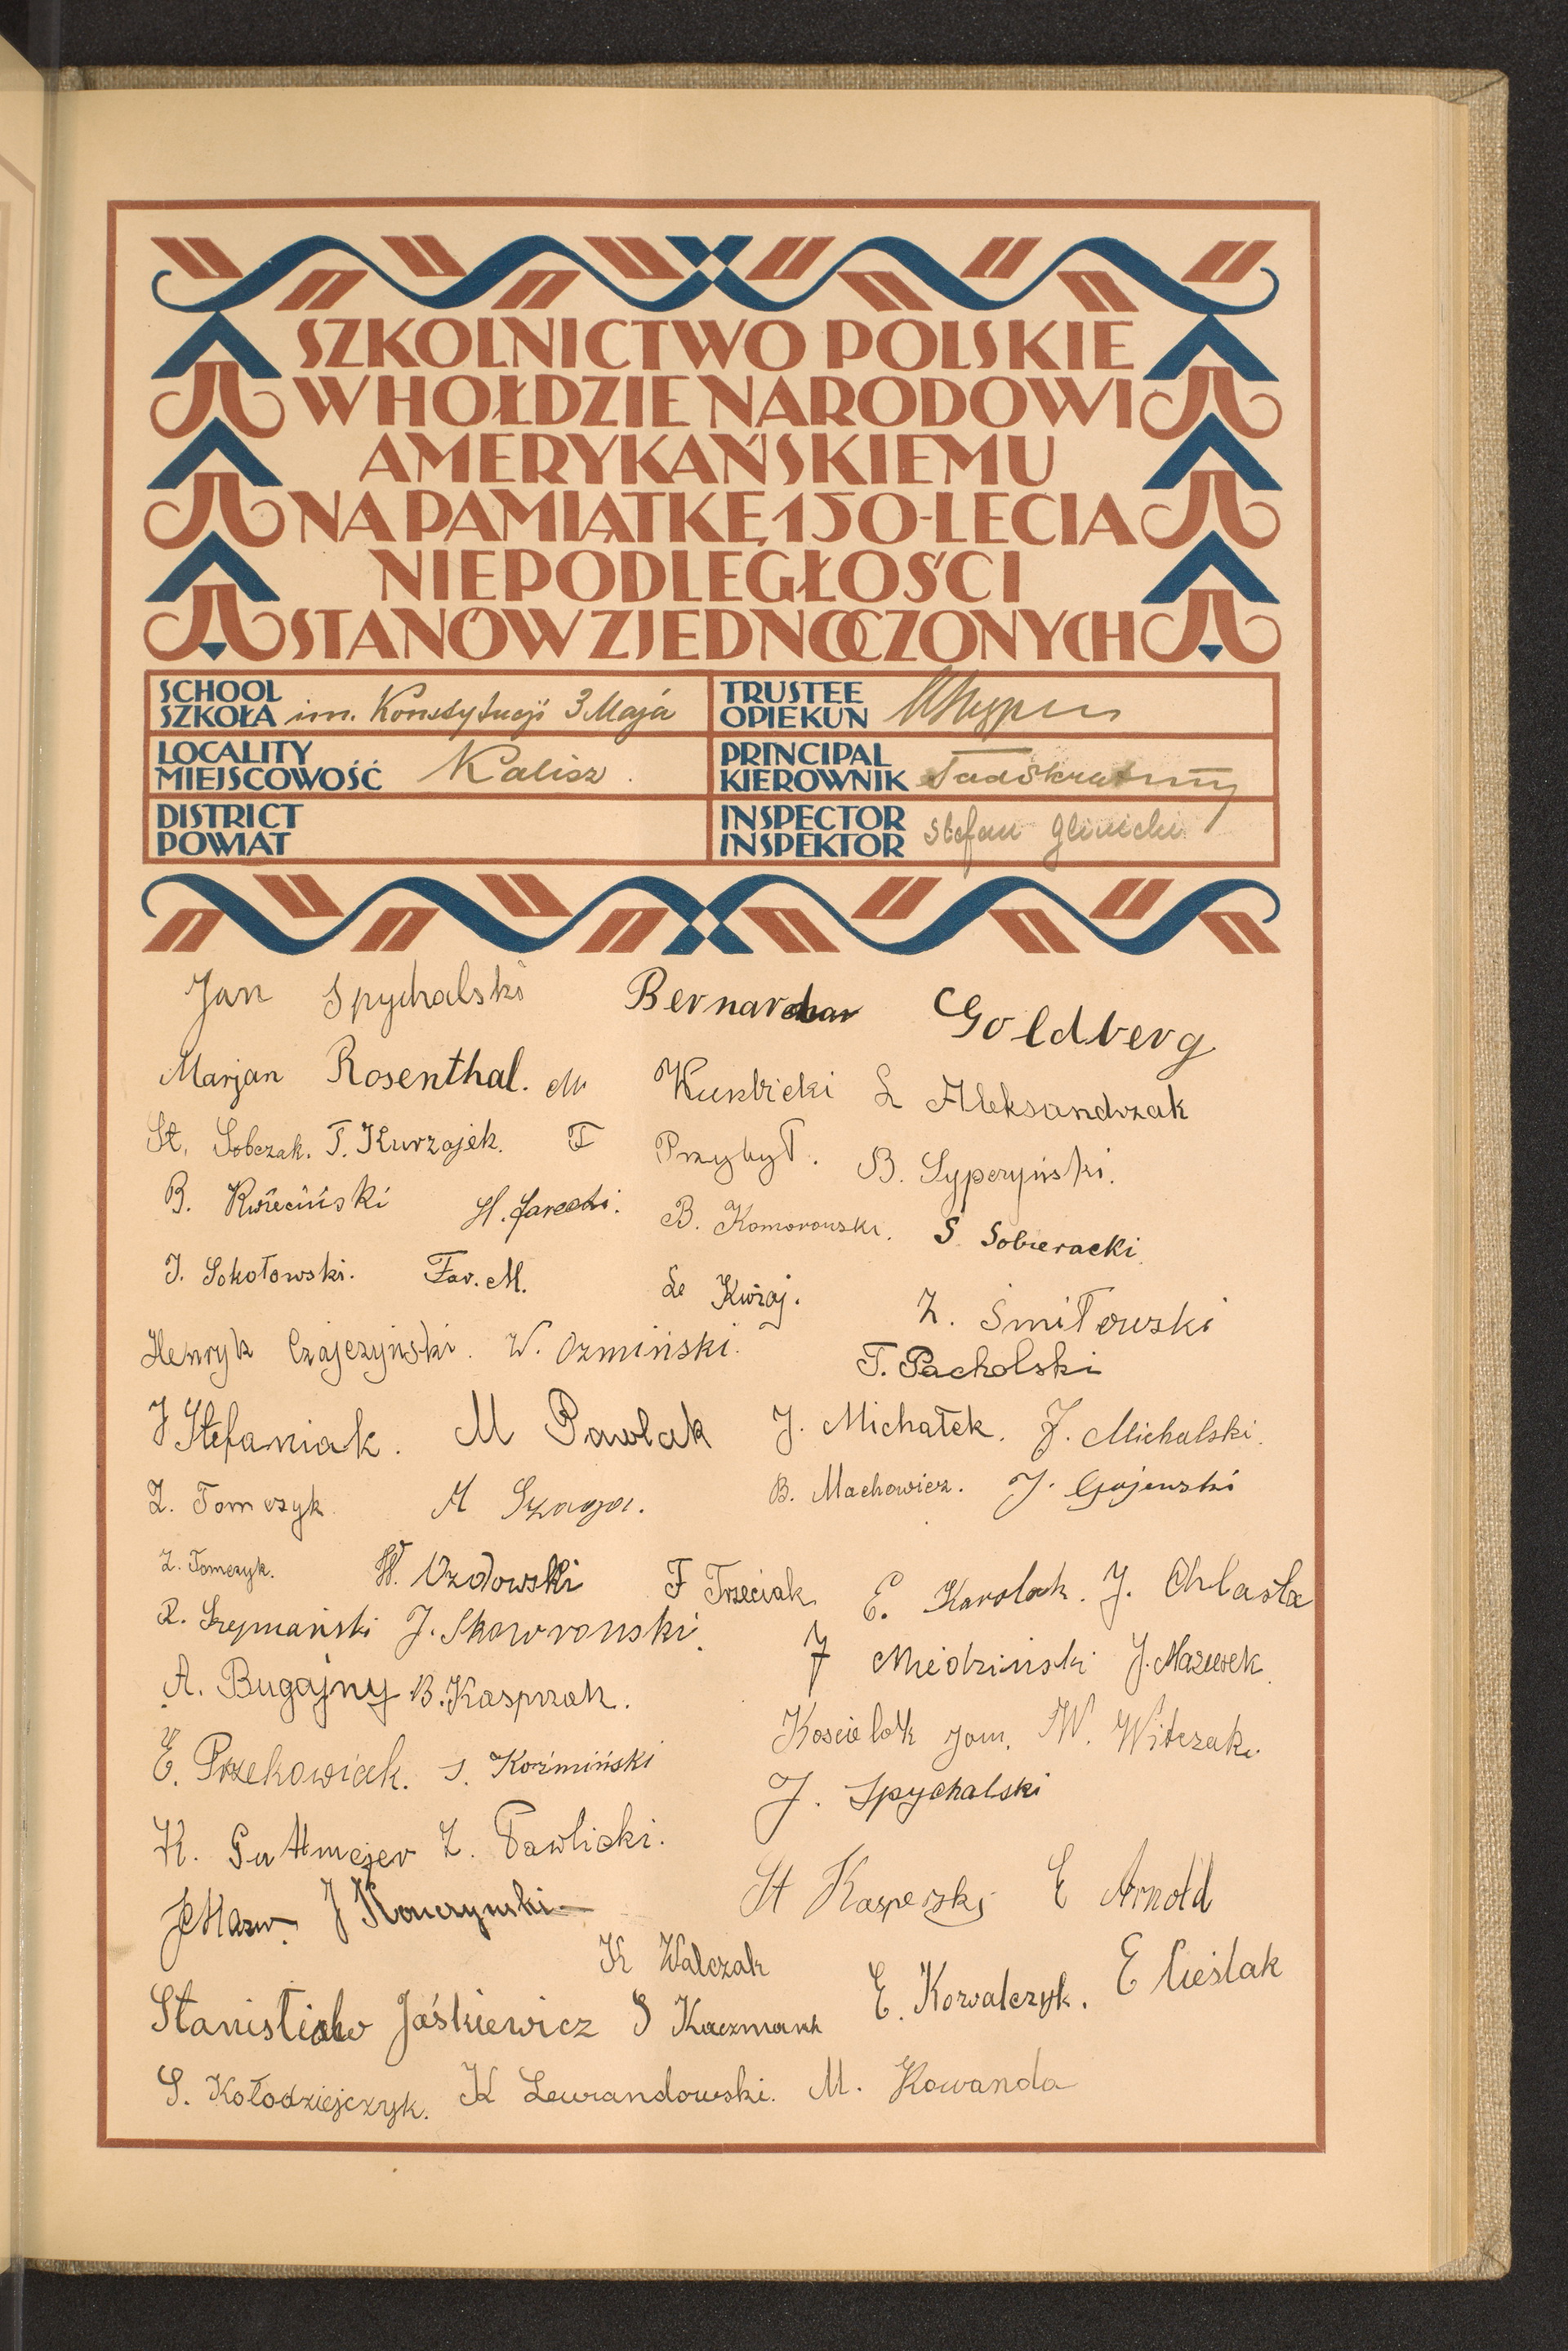 SZKOLNICTWO POLSKIE
W HOŁDZIE NARODOWI
AMERYKAŃSKIEMU
NA PAMIĄTKĘ 150-LECIA
NIEPODLEGŁOŚCI
STANÓW ZJEDNOCZONYCH
SCHOOL
SZKOŁA im. Konstytucji 3 Maja
TRUSTEE
OPIEKUN
LOCALITY
MIEJSCOWOŚĆ Kalisz.
PRINCIPAL
KIEROWNIK
DISTRICT
POWIAT
INSPECTOR
INSPEKTOR Stefan Glinicki
Jan Spychalski Goldberg
Marjan Rosenthal. M Kunbicki L Aleksandrzak
St. Sobczak. T. Kurzajek. F Przybył. B. Sypczyński.
B. Kwieciński H. Jarecki. B. Komorowski. S. Sobieracki.
J. Sokołowski. M. Z. Smiłowski
Henryk Czajczyński. W. Ozmiński. T. Pacholski
J Stefaniak. M Pawlak J. Michałek. J. Michalski.
Z. Tomczyk A B. Machowicz. J. Gajewski
Z. Tomczyk. W. Uzdowski F Trzeciak E. Karolak. J. Chlasta
R. Szymański J. Skowroński. J Miedziński J. Mazurek
A. Bugajny B. Kasprzak. Koscielak W. Witczak.
E. Przekowiak. S. Koźmiński J. Spychalski
K. Guttmejer Z. Pawlicki.
J Konczynski St Kasperski E Arnold
K Walczak E. Kowalczyk. E Cieślak
Stanisław Jaśkiewicz S Kaczmark
S. Kołodziejczyk. K Lewandowski. M. Kowanda